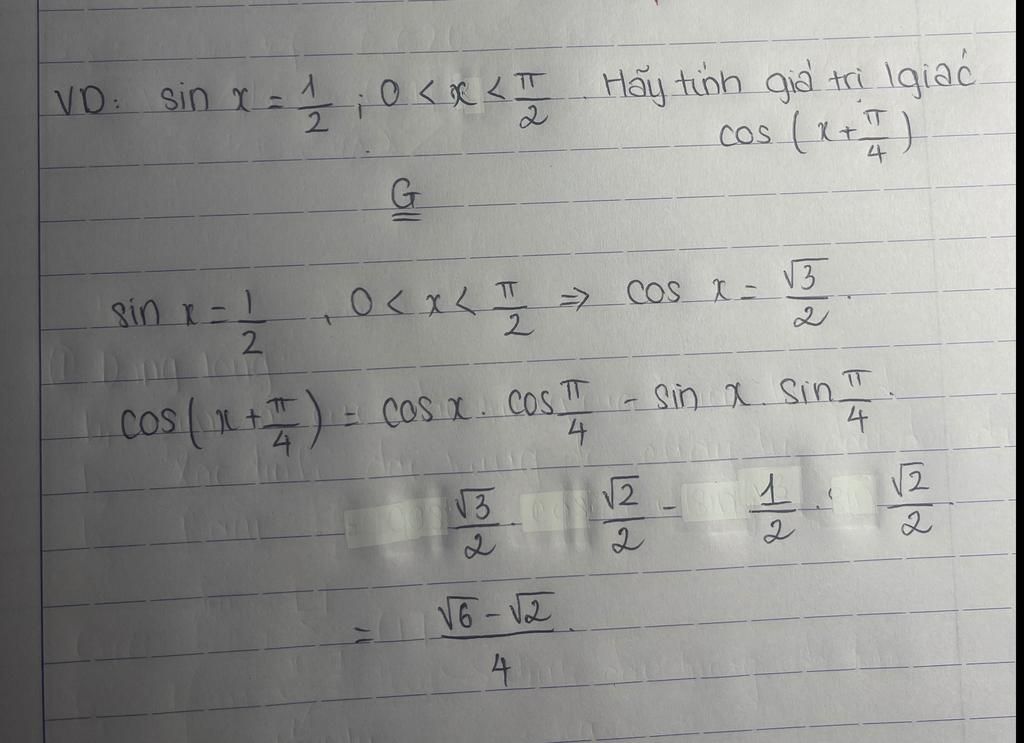 VD: sin x = 1/2 ; 0 < x < π/2 . Hãy tính giá trị lgiác
cos (x + π/4)
G
sin x = 1/2 , 0 < x < π/2 ⇒ cos x = √3/2 .
cos(x + π/4) = cos x . cos π/4 - sin x . sin π/4 .
√3/2 . √2/2 - 1/2 . √2/2
= (√6 - √2)/4 .